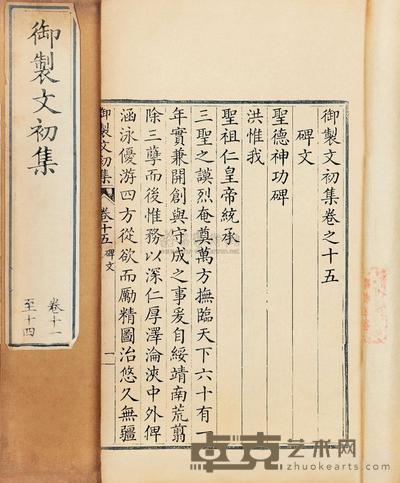 御製文初集卷之十五
碑文
聖德神功碑
洪惟我
聖祖仁皇帝統承
三聖之謨烈奄奠萬方撫臨天下六十有一
年實兼開創與守成之事爰自綏靖南荒翦
除三孽而後惟務以深仁厚澤淪浹中外俾
涵泳優游四方從欲而勵精圖治悠久無疆
御製文初集
卷十五 碑文
一
御製文初集
卷十一
至十四
卓克艺术网
zhuokearts.com